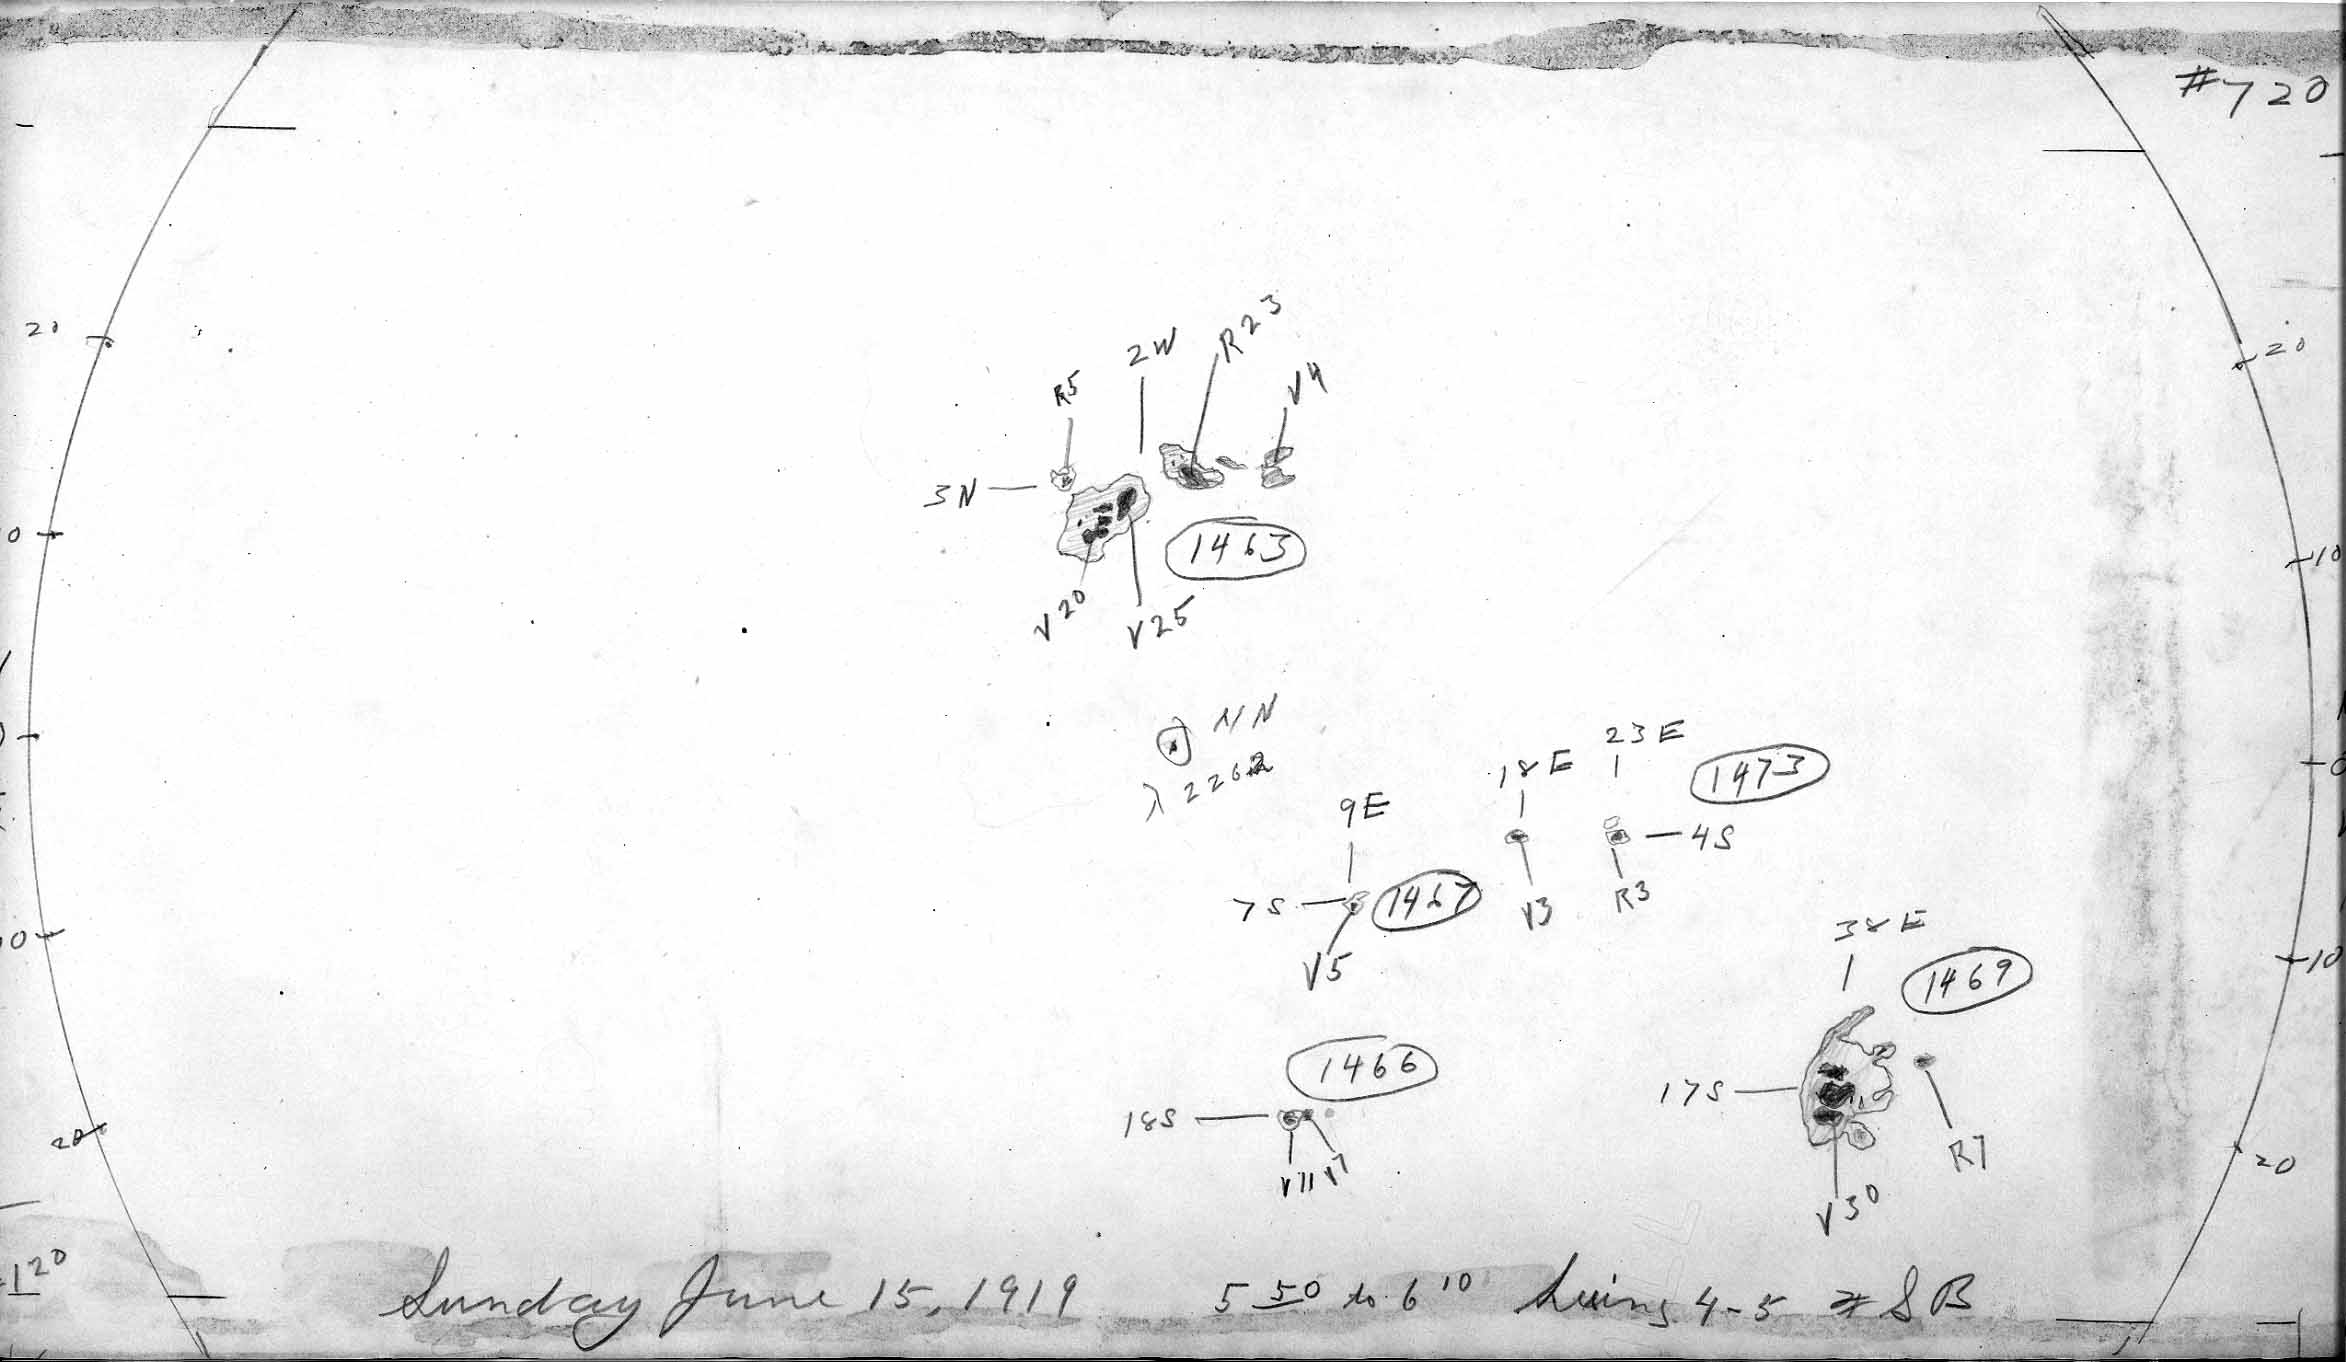 #720
20
20
R5
2W
R23
V4
3N
1463
10
V20
V25
NN
λ 226
23E
18E
1473
9E
4S
7S
1467
V3
R3
V5
38E
1469
10
1466
18S
17S
V11
V7
R7
20
20
V30
Sunday June 15, 1919 5 50 to 6 10 Seeing 4-5 SB